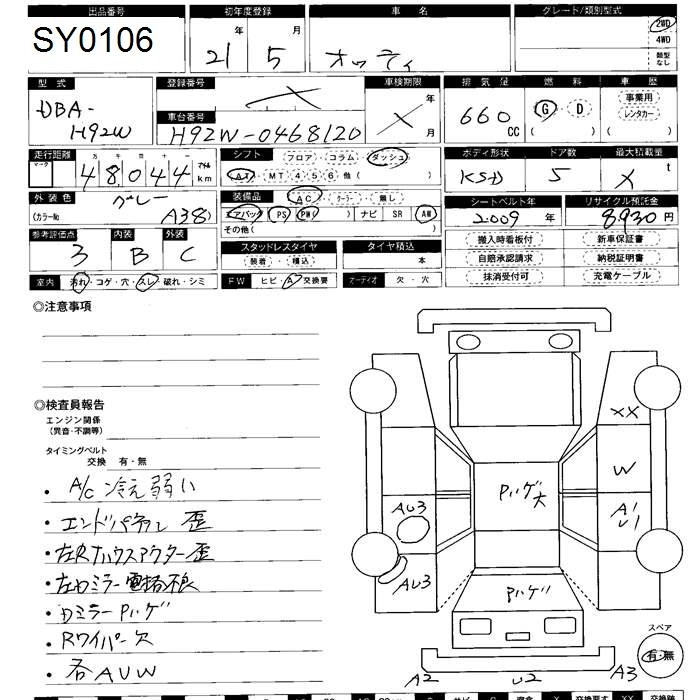 出品番号 初年度登録 車名 グレート/類別型式
SY0106 21年 5月 オッティ 2WD
4WD
類型なし
型式 登録番号 車検期限 排気量 燃料 車歴
DBA-H92W 車台番号 H92W-0468120 年 月 660 CC G・D 事業用
レンタカー
走行距離 シフト フロア・コラム・ダッシュ ボディ形状 ドア数 最大積載量
マーク 万 千 百 十 一 マイル
48,044 km AT・MT 4 5 6 他( ) 5 t
外装色 グレー 装備品 AC・クーラー・無し シートベルト年 リサイクル預託金
(カラーNo A38) エアバック PS PW( ) ナビ SR AW 2009年 8930円
その他( )
参考評価点 内装 外装 スタッドレスタイヤ タイヤ積込 搬入時看板付 新車保証書
3 B C 装着・積込 本 自賠承認請求 納税証明書
室内 汚れ・コゲ・穴・スレ・破れ・シミ FW ヒビ・A・交換要 オーディオ 欠・穴 抹消受付可 充電ケーブル
◎注意事項
◎検査員報告
エンジン関係
(異音・不調等)
タイミングベルト
交換 有・無
・A/C 冷え弱い
・エンドパネル 歪
・左Rハウスアウター歪
・左Dミラー電格不良
・DミラーPハゲ
・Rワイパー欠
・各AUW
XX
W
Pハゲ大
AU3
A1
U1
AU3
Pハゲ
スペア
有・無
A2 U2 A3